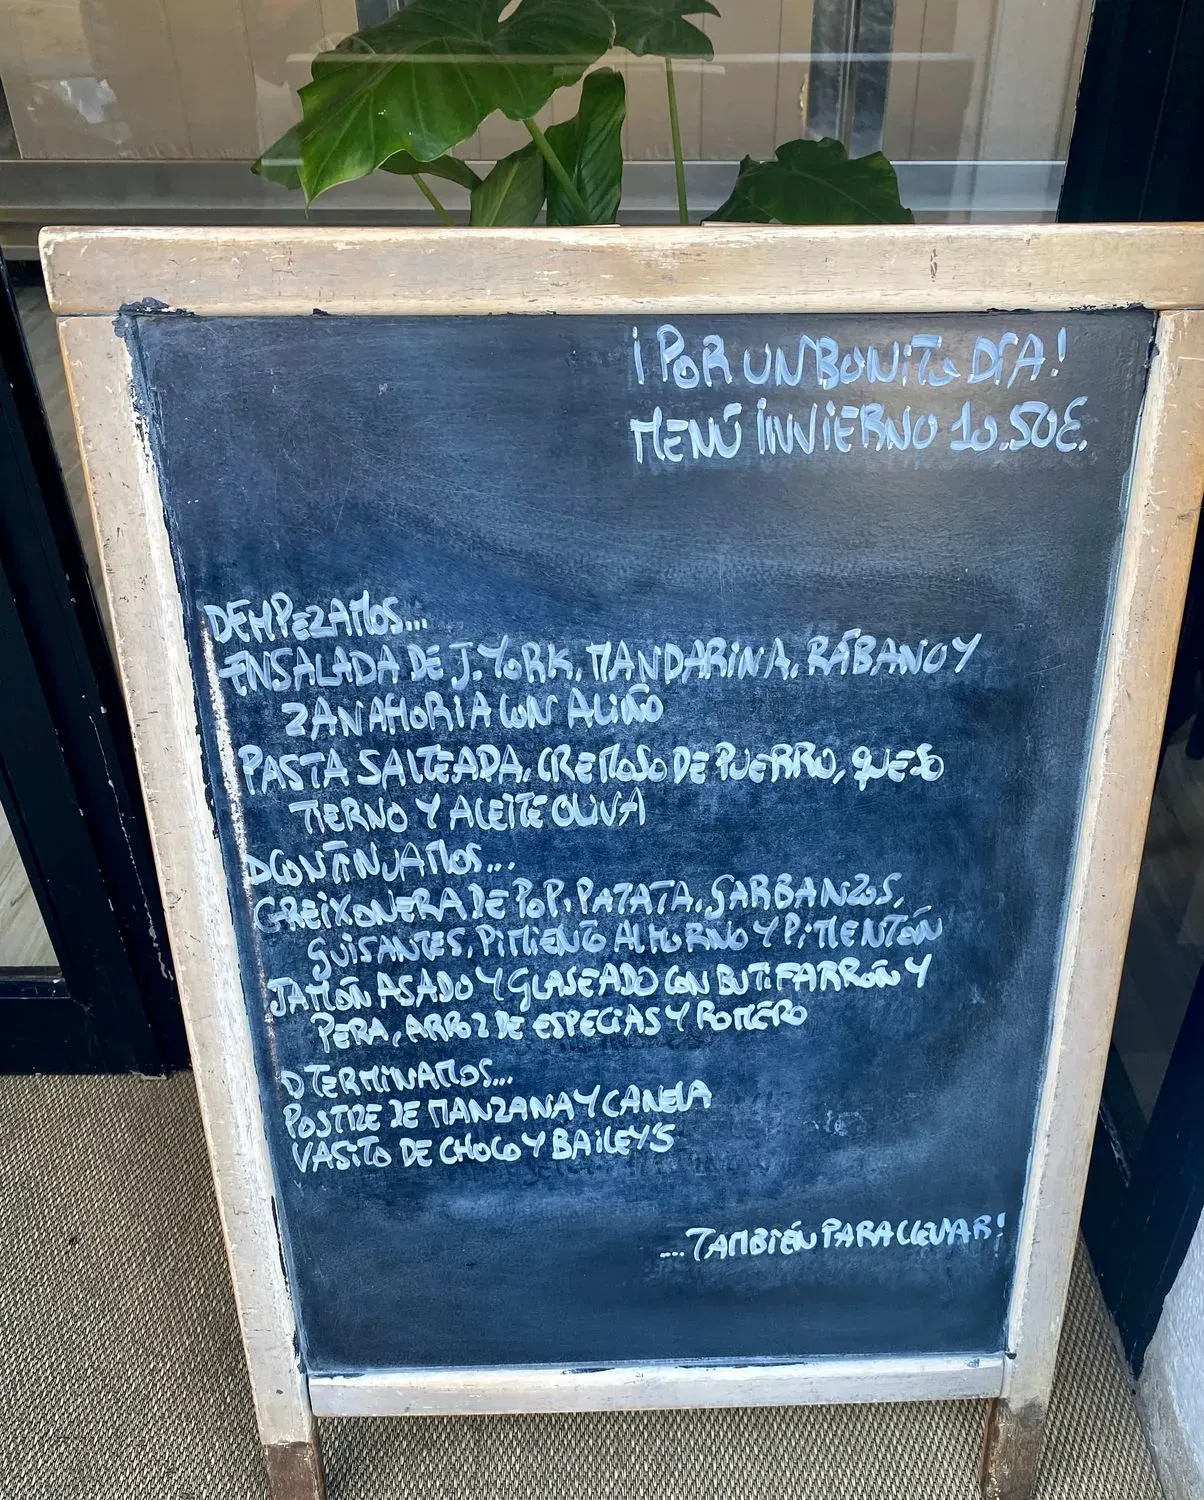 ¡POR UN BONITO DÍA!
MENÚ INVIERNO 10.50€.
DEMPEZAMOS...
ENSALADA DE J.YORK, MANDARINA, RÁBANO Y
ZANAHORIA CON ALIÑO
PASTA SALTEADA, CREMOSO DE PUERRO, QUESO
TIERNO Y ACEITE OLIVA
DCONTINUAMOS...
GREIXONERA DE POP, PATATA, GARBANZOS,
GUISANTES, PIMIENTO AL HORNO Y PIMENTÓN
JAMÓN ASADO Y GLASEADO CON BUTIFARRÓN Y
PERA, ARROZ DE ESPECIAS Y ROMERO
DTERMINAMOS...
POSTRE DE MANZANA Y CANELA
VASITO DE CHOCO Y BAILEY'S
...TAMBIÉN PARA LLEVAR!